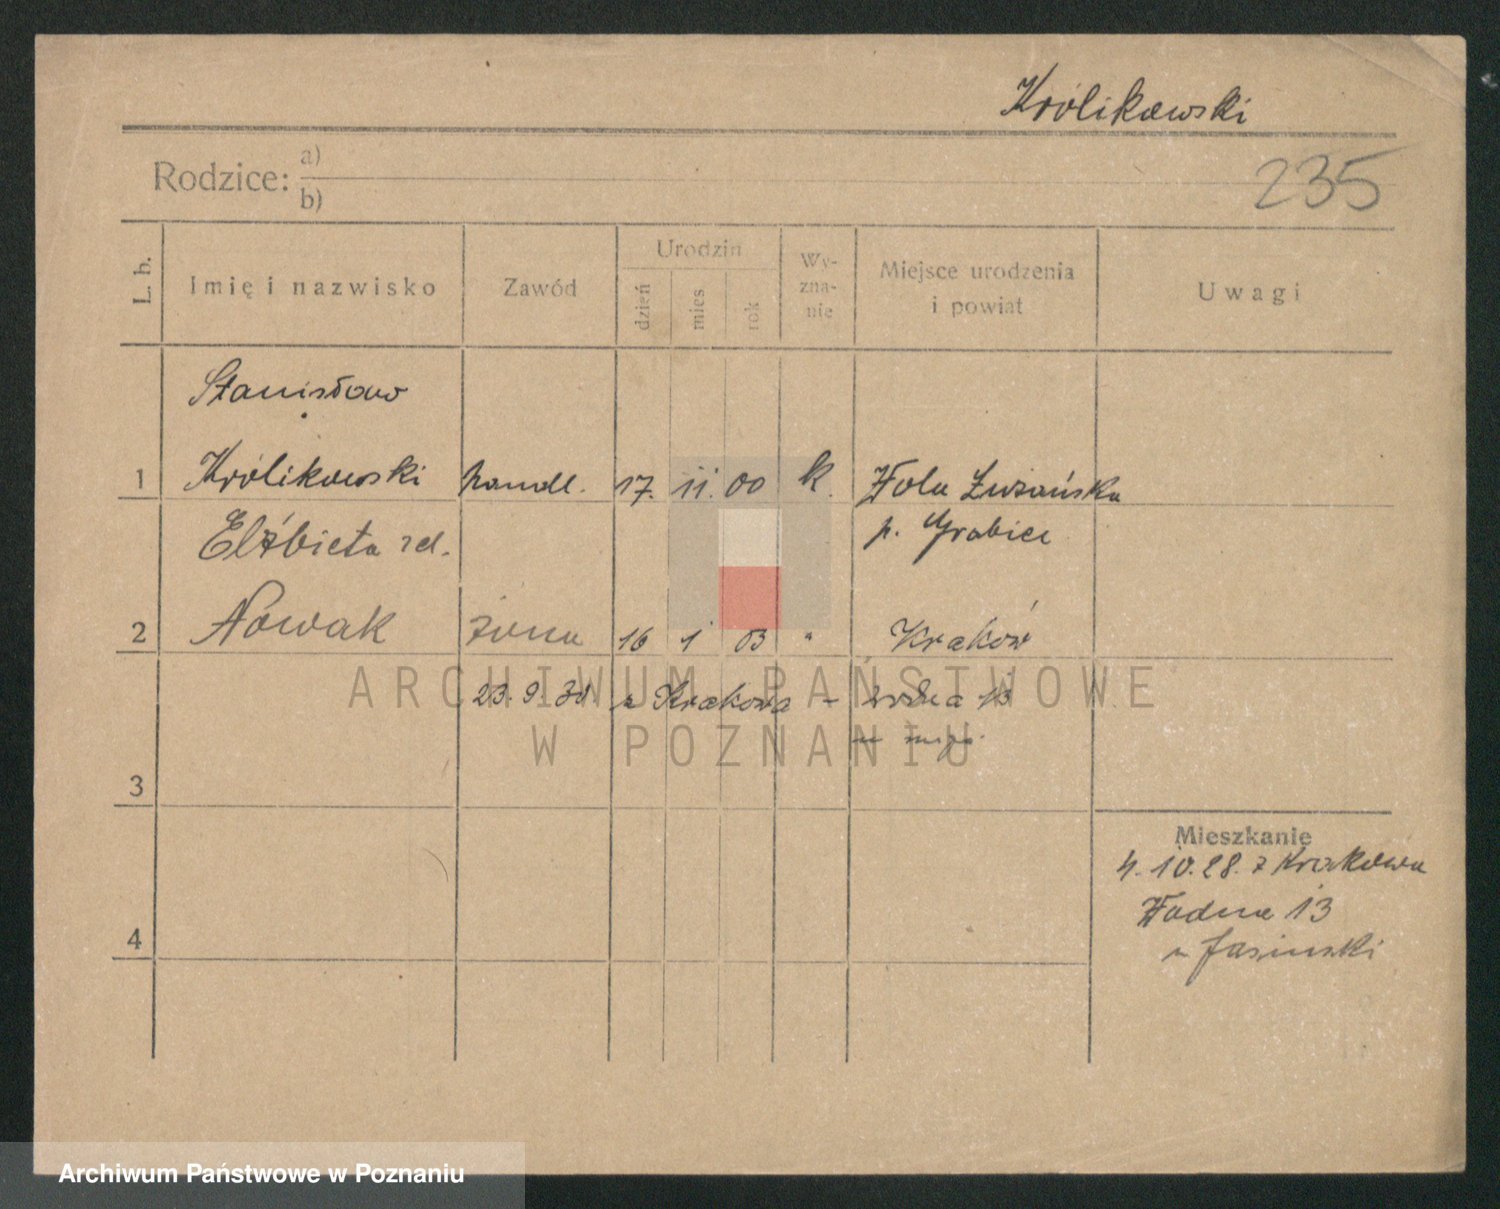 Królikowski
235
Rodzice: a)
b)
L. b. Imię i nazwisko Zawód Urodzin dzień mies rok Wy-zna-nie Miejsce urodzenia i powiat Uwagi
Stanisław
1 Królikowski handl. 17. 11. 00 k. Wola
p.
Elżbieta
2 Nowak żona 16 1 03 " Kraków
23. 9. z Krakowa -
3
Mieszkanie
4. 10. 28. z Krakowa
Wodna 13
u Jasinski
4
ARCHIWUM PAŃSTWOWE
W POZNANIU
Archiwum Państwowe w Poznaniu